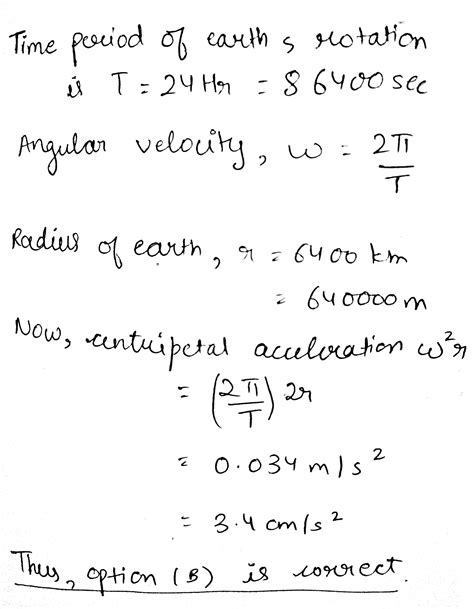 Time period of earth s rotation
is T = 24 Hr = 86400 sec
Angular velocity, ω = 2π/T
Radius of earth, r = 6400 km
= 640000 m
Now, centripetal acceleration ω²r
= (2π/T) 2r
= 0.034 m/s²
= 3.4 cm/s²
Thus, option (B) is correct.